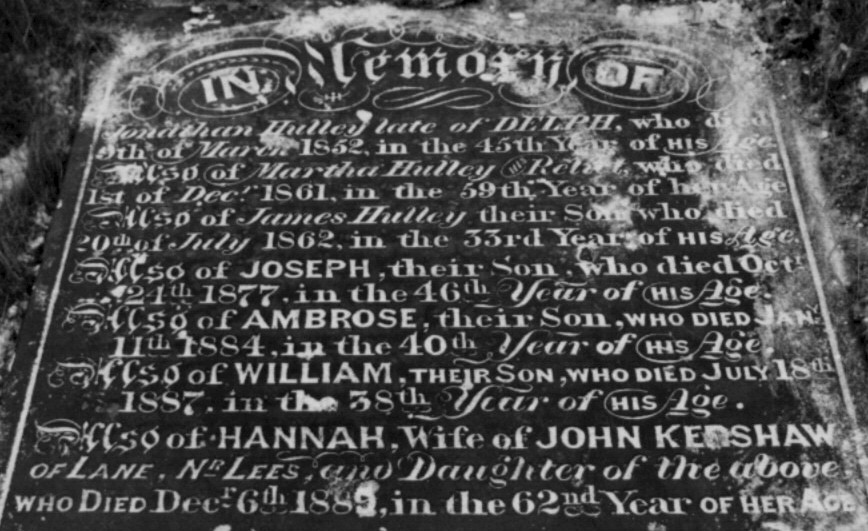 IN Memory OF
Jonathan Hulley late of DELPH, who died
9th of March 1852, in the 45th Year of HIS Age.
Also of Martha Hulley HIS Relict, who died
1st of Decr. 1861, in the 59th Year of her Age
Also of James Hulley their Son who died
20th of July 1862, in the 33rd Year of HIS Age.
Also of JOSEPH, their Son, who died Octr
24th 1877, in the 46th Year of HIS Age.
Also of AMBROSE, their Son, WHO DIED JANY
11th 1884, in the 40th Year of HIS Age
Also of WILLIAM, THEIR SON, WHO DIED JULY 18th
1887, in the 38th Year of HIS Age.
Also of HANNAH, Wife of JOHN KERSHAW
OF LANE, NR LEES, and Daughter of the above
WHO DIED Decr 6th in the 62nd Year OF HER AGE